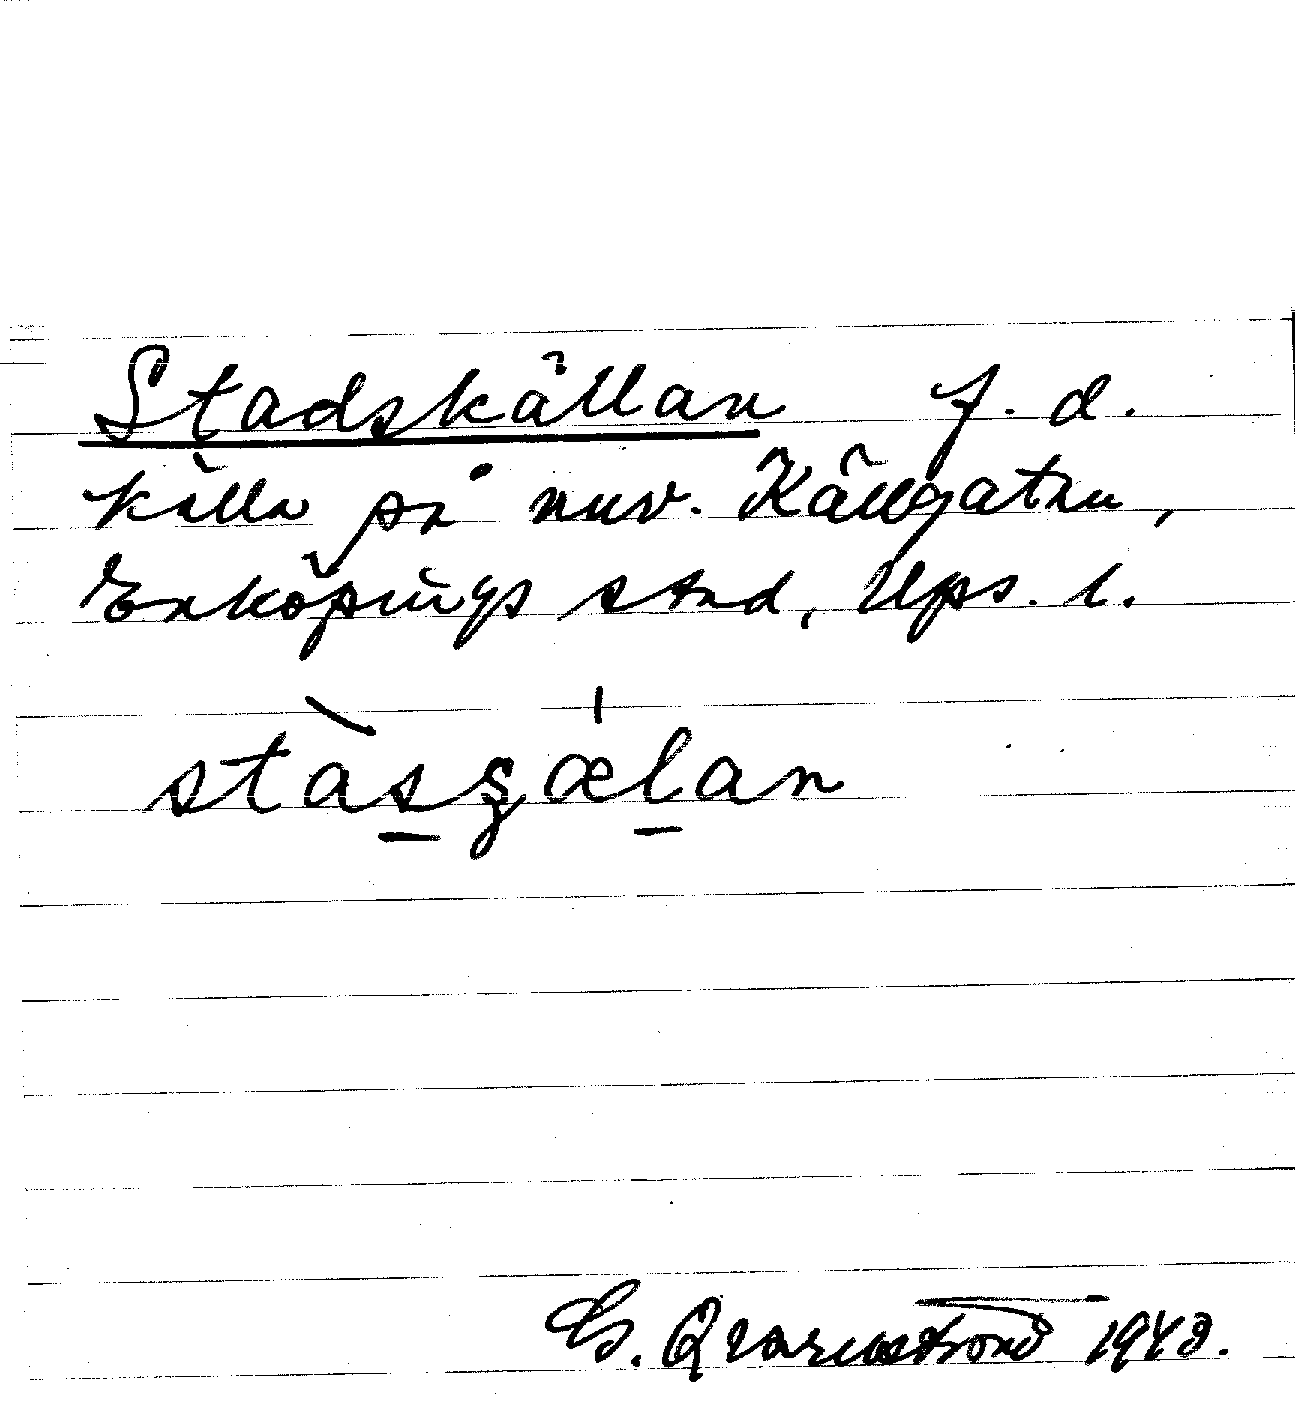 Stadskällan f. d.
källa på nuv. Källgatan,
Enköpings stad, Ups. l.
stàsʂæ̍lan
G. Qvarnström 1943.